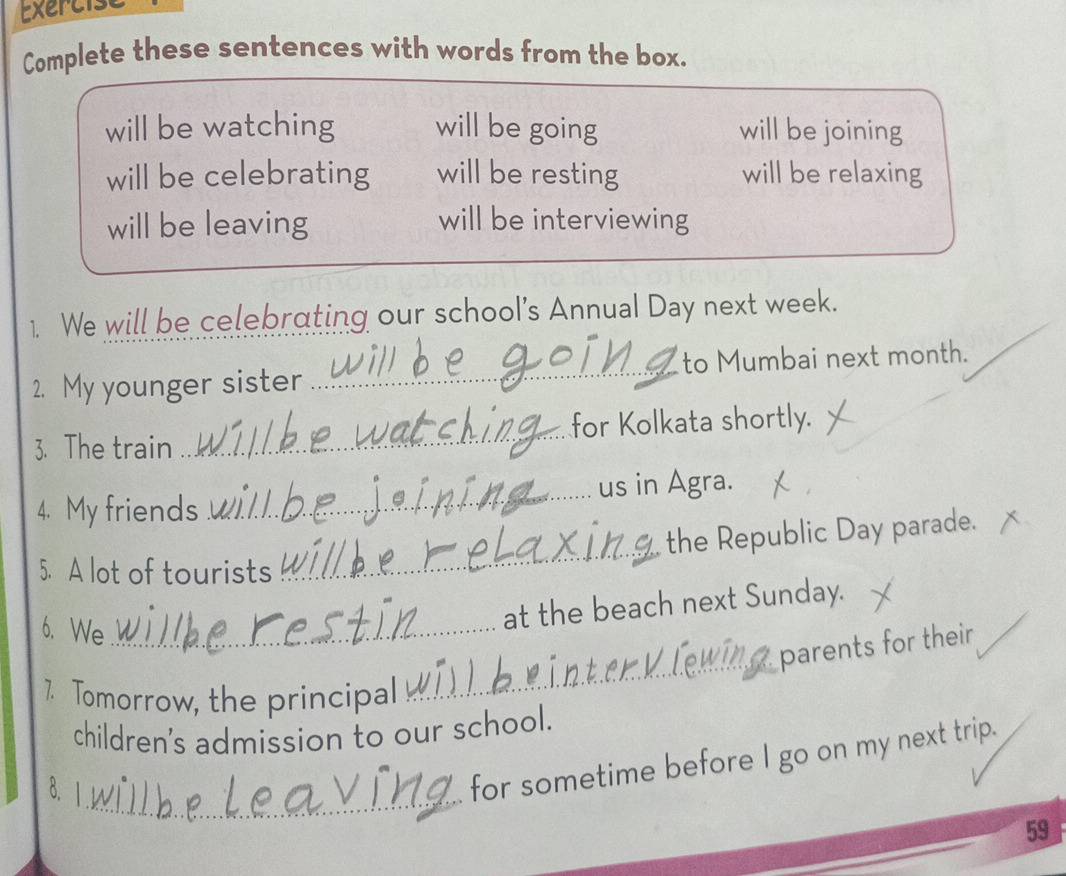 Exercise
Complete these sentences with words from the box.
will be watching will be going will be joining
will be celebrating will be resting will be relaxing
will be leaving will be interviewing
1. We will be celebrating our school's Annual Day next week.
2. My younger sister will be going to Mumbai next month.
3. The train will be watching for Kolkata shortly.
4. My friends will be joining us in Agra.
5. A lot of tourists will be relaxing the Republic Day parade.
6. We will be restin at the beach next Sunday.
7. Tomorrow, the principal will be interviewing parents for their
children's admission to our school.
8. I will be leaving for sometime before I go on my next trip.
59